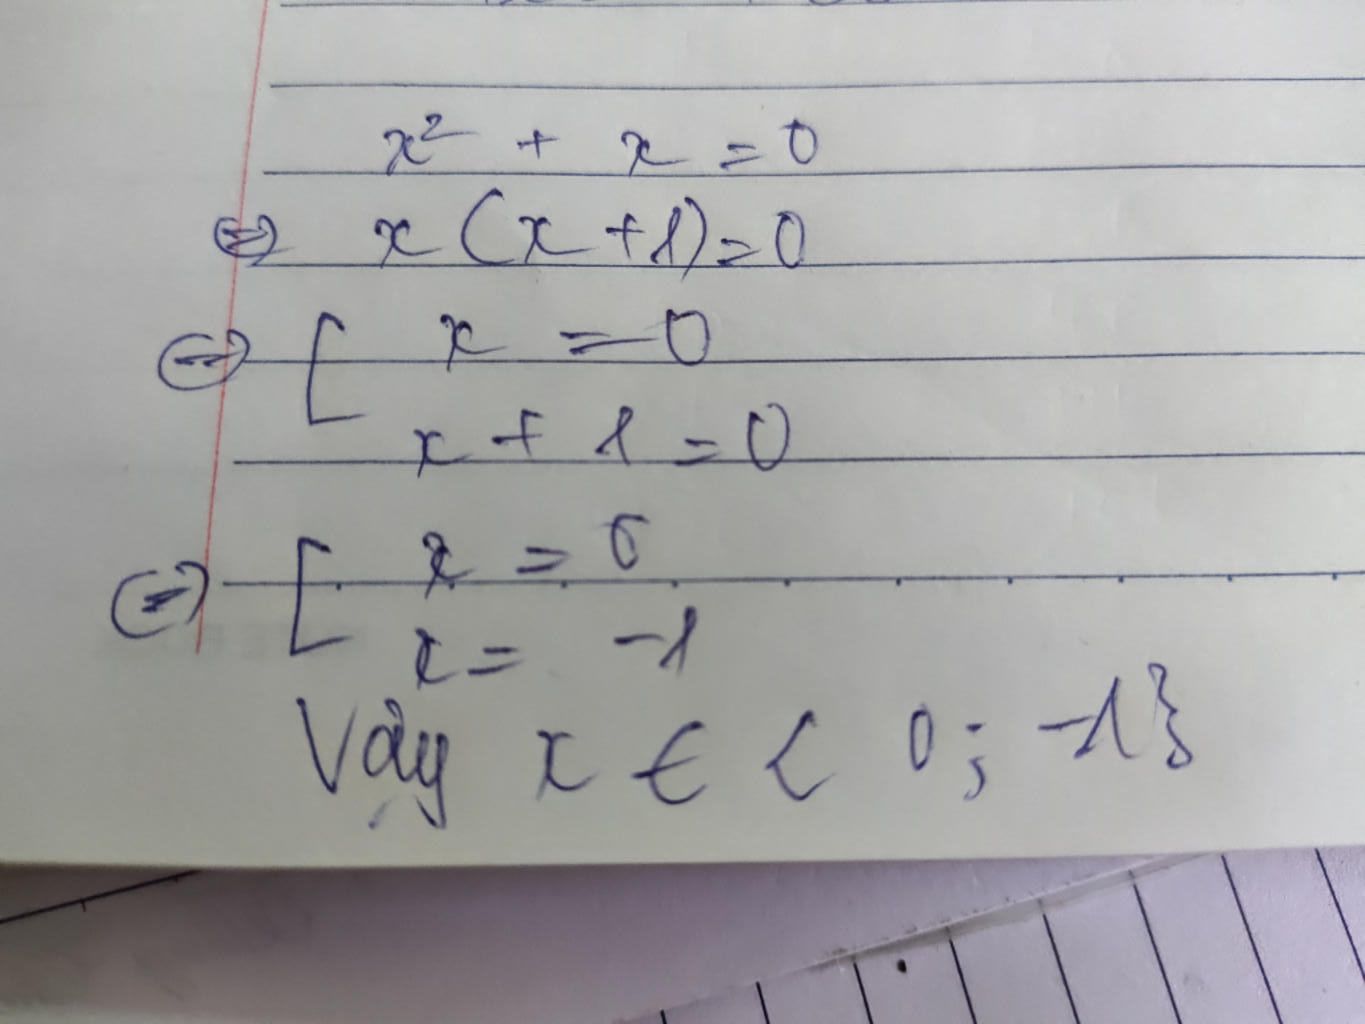 x² + x = 0
⇔ x (x + 1) = 0
⇔ [ x = 0
x + 1 = 0
⇔ [ x = 0
x = -1
Vậy x ∈ { 0 ; -1 }